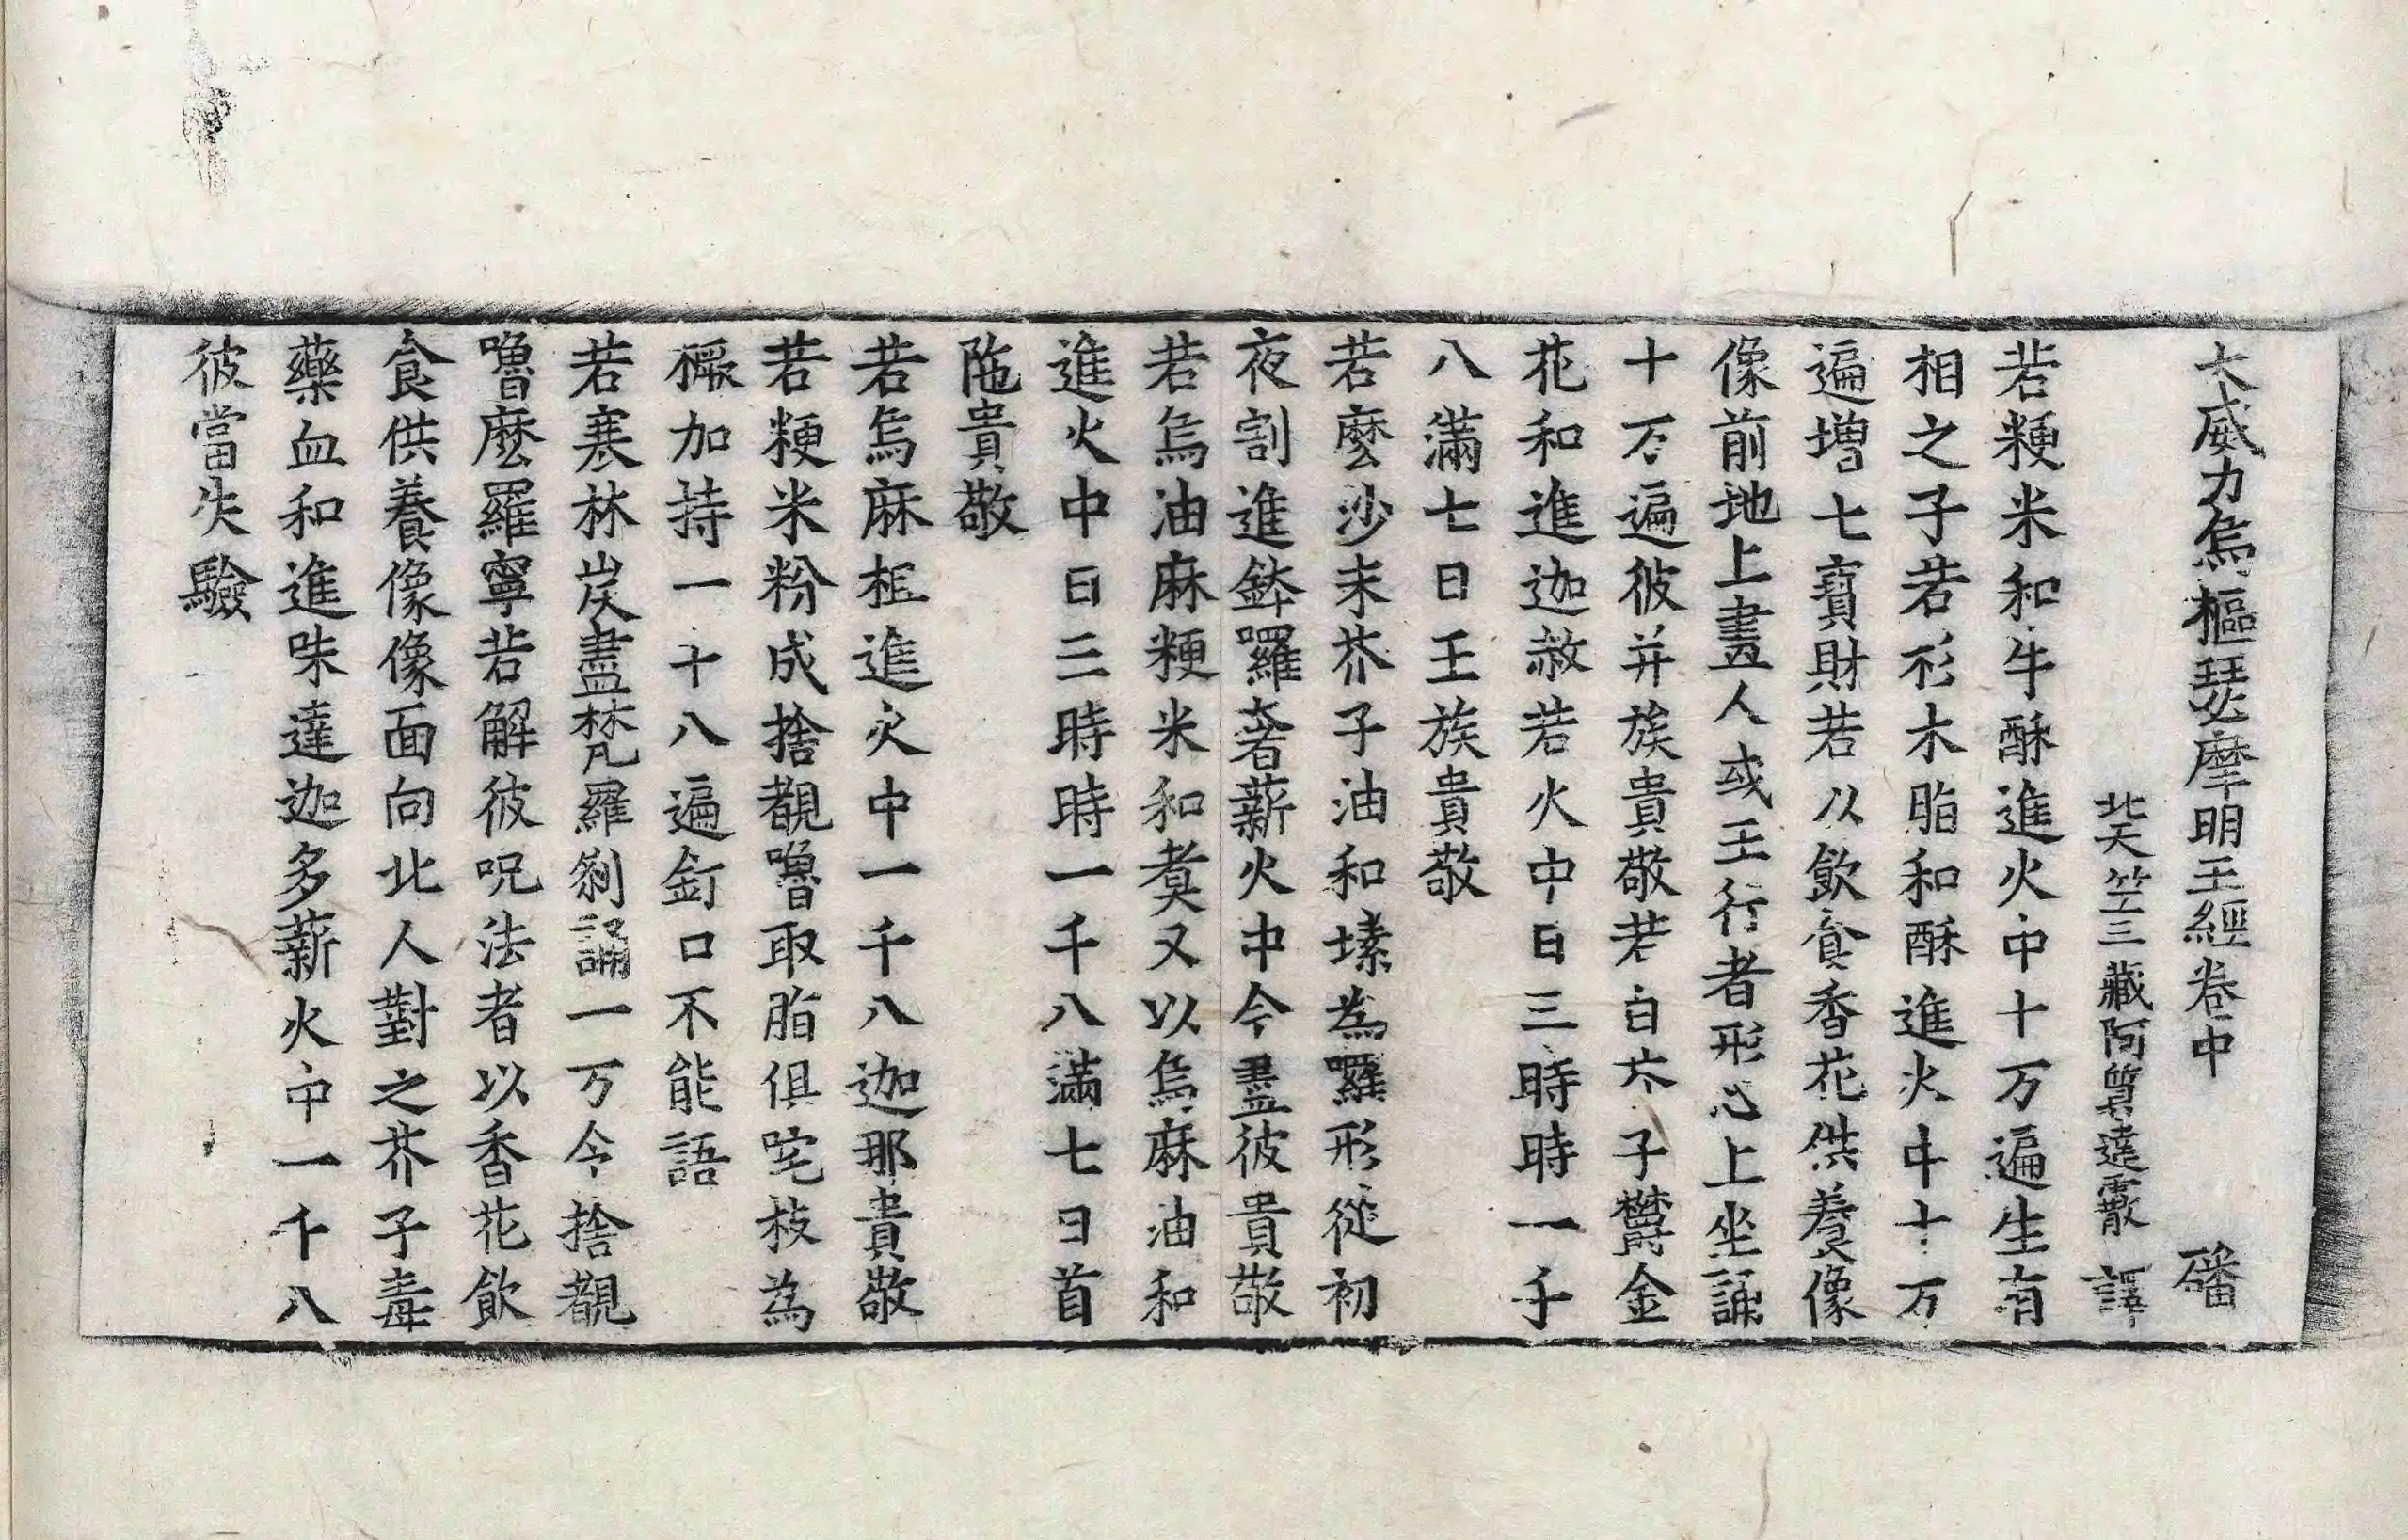 大威力烏樞瑟摩明王經卷中 磻
北天竺三藏阿質達霰 譯
若粳米和牛酥進火中十万遍生有
相之子若形木脂和酥進火中十万
遍增七寶財若以飲食香花供養像
像前地上畫人或王行者形心上坐誦
十万遍彼并族貴敬若白芥子欝金
花和進迦赦若火中日三時時一千
八滿七日王族貴敬
若麼沙末芥子油和塐為囉形從初
夜割進鉢囉奢薪火中令盡彼貴敬
若烏油麻粳米和煑又以烏麻油和
進火中日三時時一千八滿七日首
陁貴敬
若烏麻柩進火中一千八迦那貴敬
若粳米粉成捨覩嚕取脂俱吒枝為
橛加持一十八遍釘口不能語
若寒林炭畫梵羅剎誦一万令捨覩
嚕麼羅寧若解彼呪法者以香花飲
食供養像像面向北人對之芥子毒
藥血和進昧達迦多薪火中一千八
彼當失驗